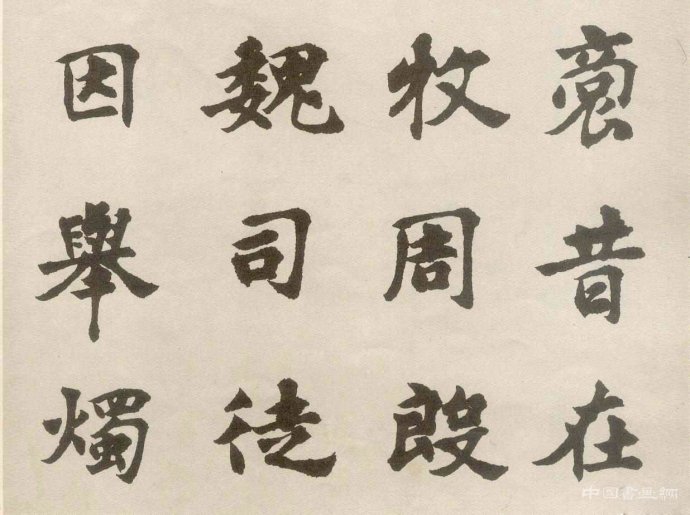 裔昔在
牧周殷
魏司徒
因舉燭
中国書画網